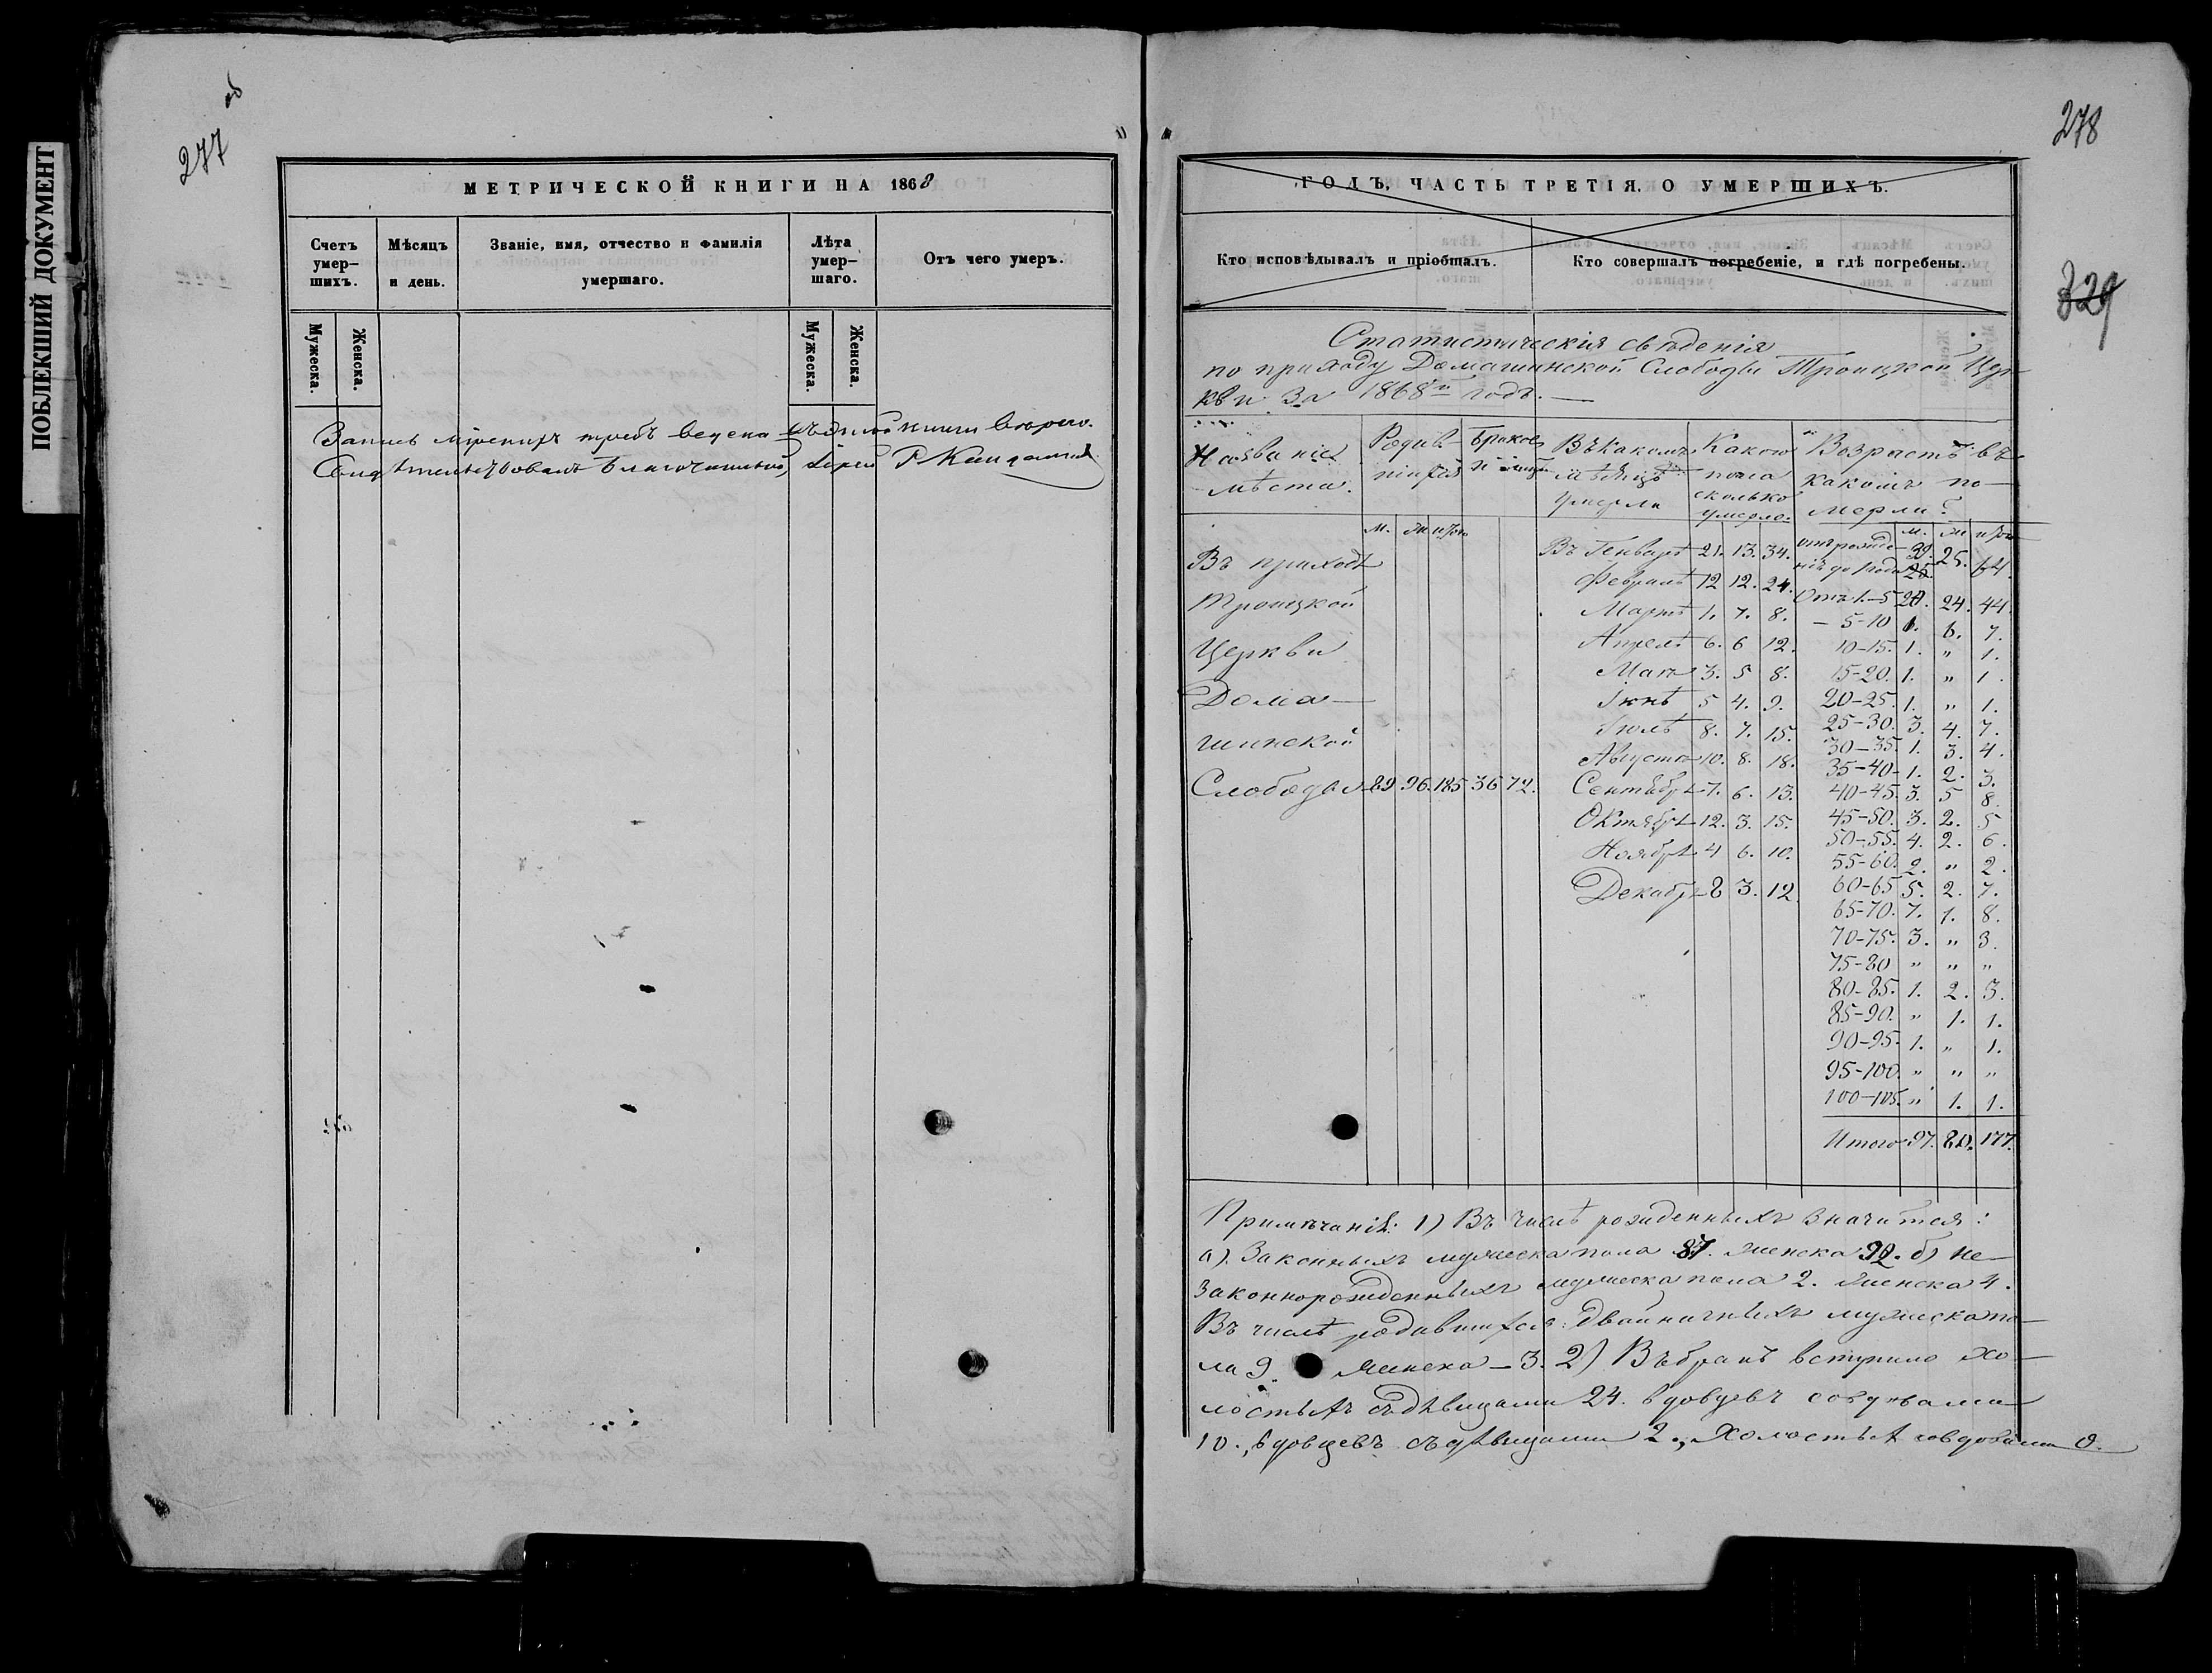 ПОБЛЕКШИЙ ДОКУМЕНТ
277 об
МЕТРИЧЕСКОЙ КНИГИ НА 1868
Счетъ умер-шихъ.
Мѣсяцъ и день.
Званіе, имя, отчество и фамилія умершаго.
Лѣта умер-шаго.
Отъ чего умеръ.
Мужеска.
Женска.
Мужеска.
Женска.
Запись мірскихъ требъ ведена
Свидѣтельствовалъ благочинный, Іерей Р.
278
329
ГОДЪ, ЧАСТЬ ТРЕТІЯ, О УМЕРШИХЪ.
Кто исповѣдывалъ и пріобщалъ.
Кто совершалъ погребеніе, и гдѣ погребены.
Статистическія свѣденія
по приходу Домашинской Слободы Троицкой Цер-
кви за 1868й годъ.
Названіе мѣста.
Браковъ и
Въ какомъ мѣсяцѣ умерли
Какого пола сколько умерло
Возрастъ въ какомъ по-мерли?
м. ж итого
м. ж итого
Въ приходѣ
Троицкой
Церкви
Дома-
шинской
Слободы 89 96. 185 36 72.
Въ Генварѣ 21. 13. 34.
Февралѣ 12 12. 24.
Мартѣ 1. 7. 8.
Апрелѣ 6. 6 12.
Маѣ 3. 5 8.
Іюнѣ 5 4. 9.
Іюлѣ 8. 7. 15.
Августѣ 10. 8. 18.
Сентябрѣ 7. 6. 13.
Октябрѣ 12. 3. 15.
Ноябрѣ 4 6. 10.
Декабрѣ 8 3. 12
отъ рожде-нія до 1 года 39. 25. 64.
Отъ 1.-5 20. 24. 44.
- 5-10 1. 6. 7.
10-15. 1. " 1.
15-20. 1. " 1.
20-25. 1. " 1.
25-30. 3. 4. 7.
30-35. 1. 3. 4.
35-40- 1. 2. 3.
40-45. 3. 5 8.
45-50. 3. 2. 5
50-55. 4. 2. 6.
55-60. 2. " 2.
60-65 5. 2. 7.
65-70. 7. 1. 8.
70-75. 3. " 3.
75-80 " " "
80-85. 1. 2. 3.
85-90. " 1. 1.
90-95. 1. " 1.
95-100. " " "
100-105. " 1. 1.
Итого 97. 80. 177.
Примѣчаніе: 1) Въ числѣ рожденныхъ значится:
а). Законныхъ мужеска пола 87. женска 92. б) не-
законнорожденныхъ мужеска пола 2. женска 4.
Въ числѣ родившихся: двойничныхъ мужеска по-
ла 9. женска - 3. 2) Въ бракъ вступило хо-
лостыхъ съ дѣвицами 24. вдовцевъ со вдовами
10., вдовцевъ съ дѣвицами 2., холостых со вдовами 0.